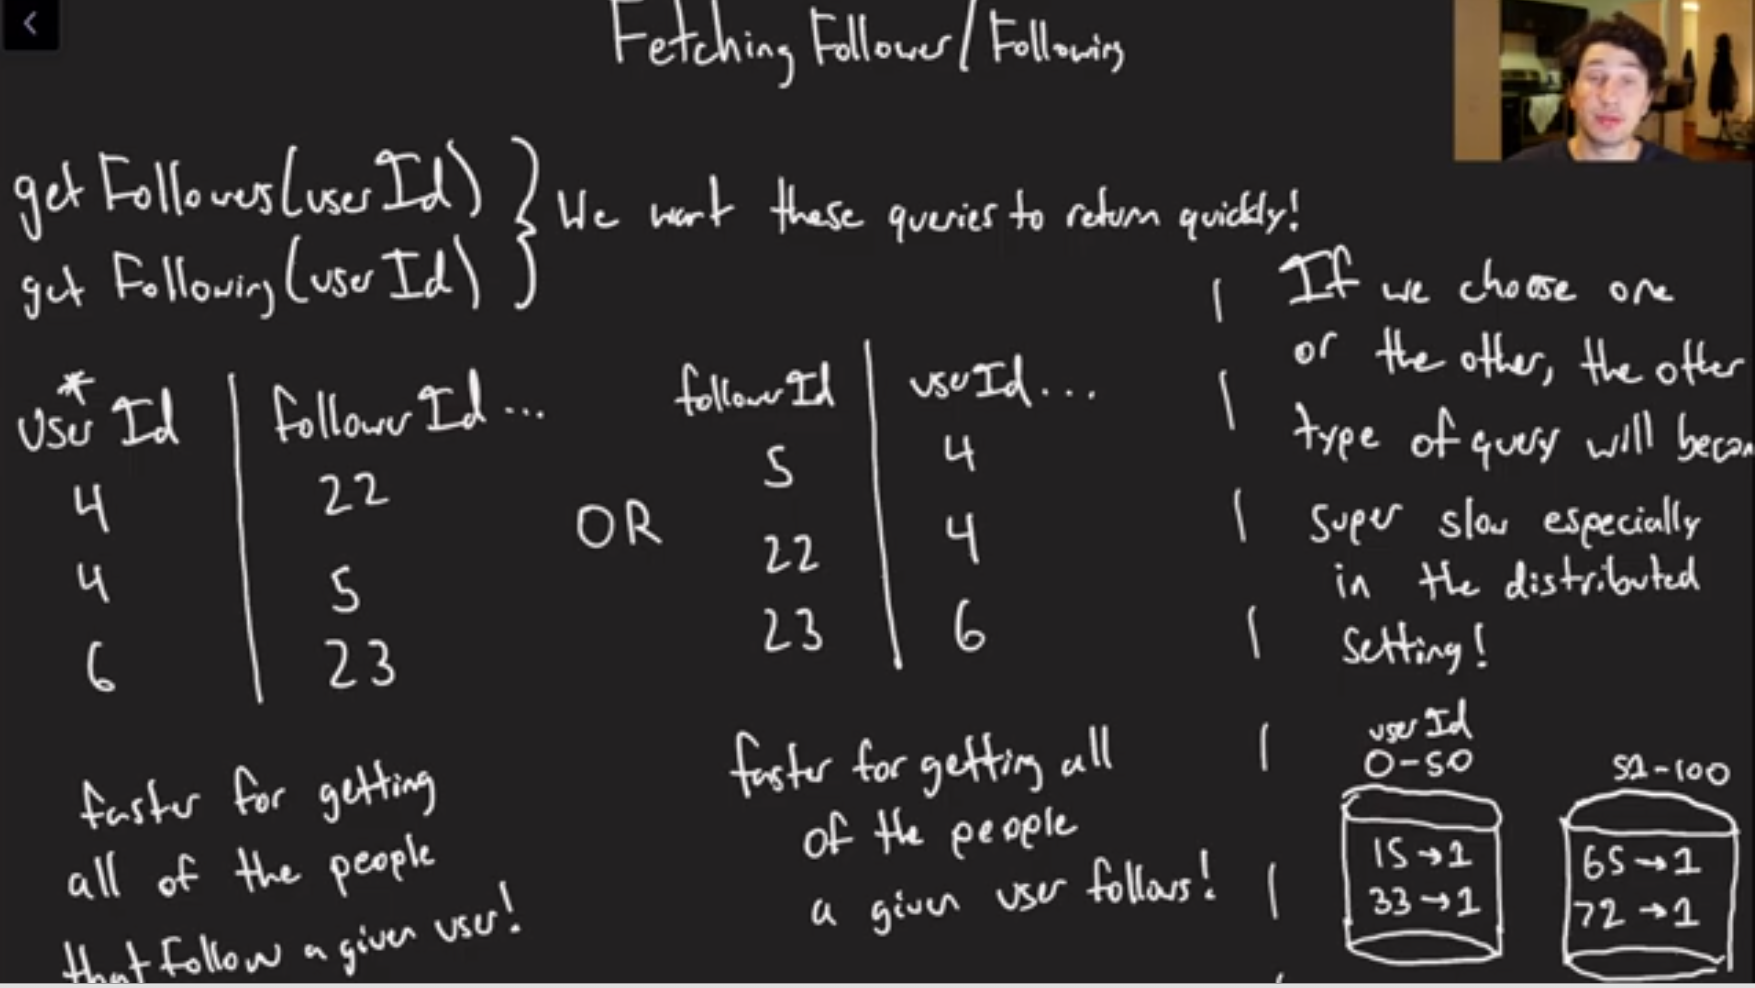 Fetching Follower/Following
get Followers(user Id)
get Following(user Id)
We want these queries to return quickly!
*
User Id | follower Id...
4 | 22
4 | 5
6 | 23
faster for getting
all of the people
that follow a given user!
OR
follower Id | user Id...
5 | 4
22 | 4
23 | 6
faster for getting all
of the people
a given user follows!
If we choose one
or the other, the other
type of query will becom
super slow especially
in the distributed
setting!
user Id
0-50
15→1
33→1
51-100
65→1
72→1